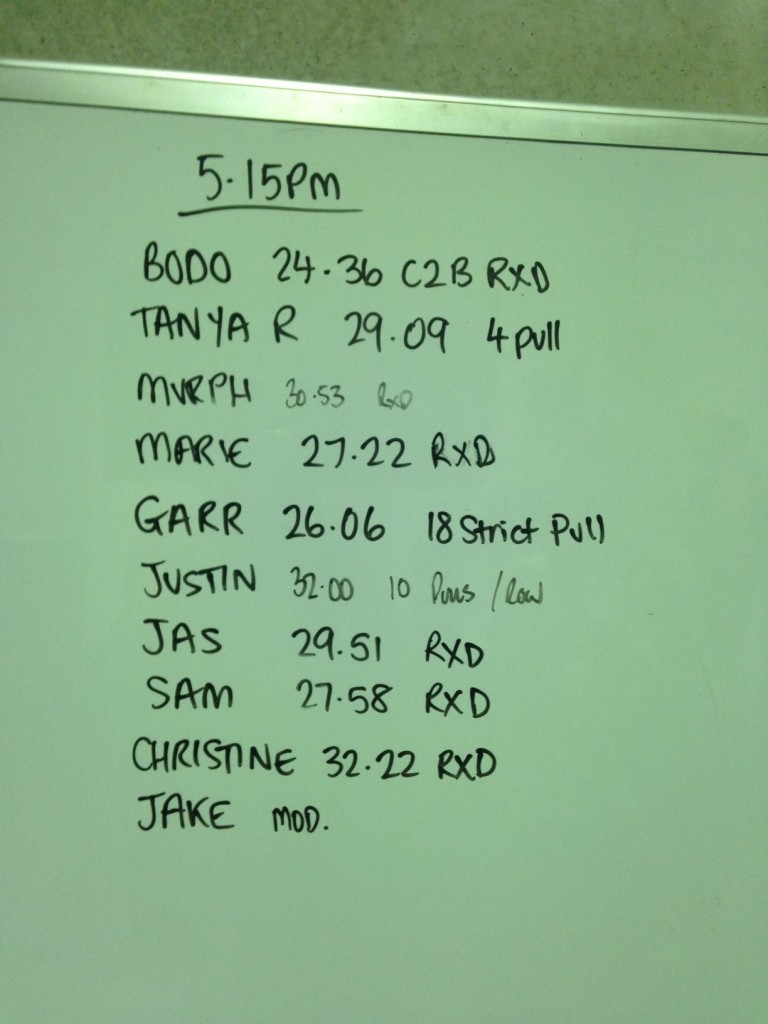 5.15PM
BODO 24.36 C2B RXD
TANYA R 29.09 4 pull
MURPH 30.53 RXD
MARIE 27.22 RXD
GARR 26.06 18 Strict Pull
JUSTIN 32.00 10 /Row
JAS 29.51 RXD
SAM 27.58 RXD
CHRISTINE 32.22 RXD
JAKE MOD.